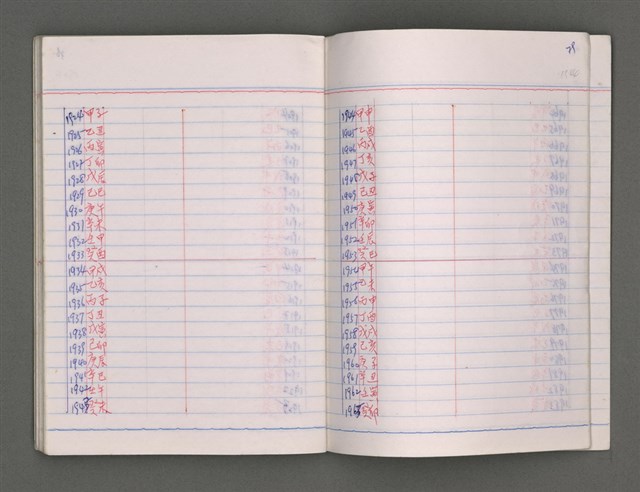 1924 甲子
1925 乙丑
1926 丙寅
1927 丁卯
1928 戊辰
1929 己巳
1930 庚午
1931 辛未
1932 壬申
1933 癸酉
1934 甲戌
1935 乙亥
1936 丙子
1937 丁丑
1938 戊寅
1939 己卯
1940 庚辰
1941 辛巳
1942 壬午
1943 癸未
29
1944 甲申
1945 乙酉
1946 丙戌
1947 丁亥
1948 戊子
1949 己丑
1950 庚寅
1951 辛卯
1952 壬辰
1953 癸巳
1954 甲午
1955 乙未
1956 丙申
1957 丁酉
1958 戊戌
1959 己亥
1960 庚子
1961 辛丑
1962 壬寅
1963 癸卯